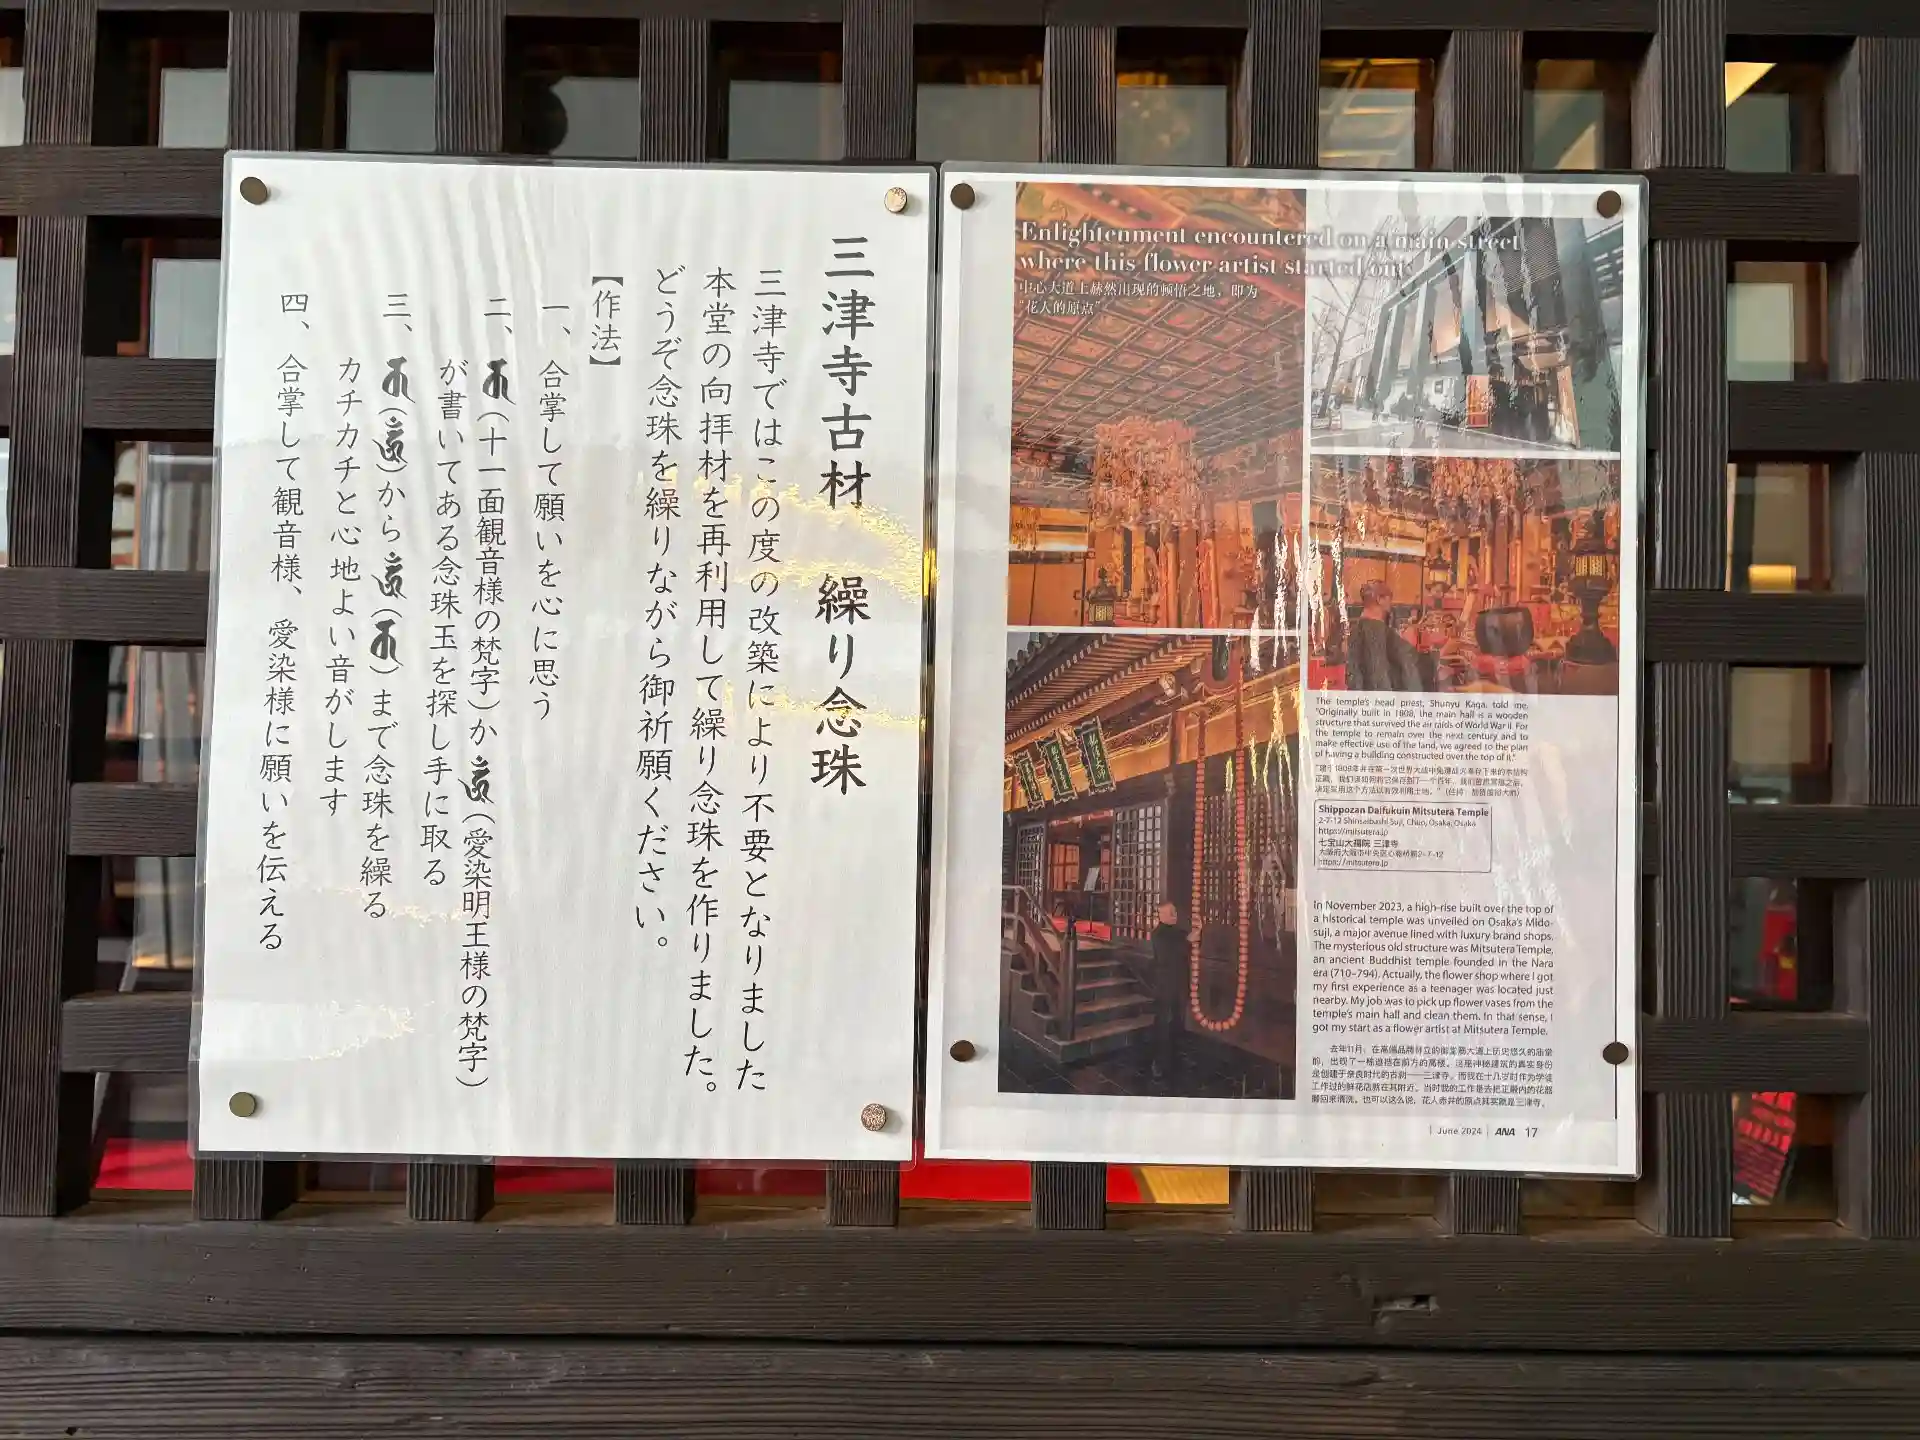 三津寺古材　繰り念珠
三津寺ではこの度の改築により不要となりました
本堂の向拝材を再利用して繰り念珠を作りました。
どうぞ念珠を繰りながら御祈願ください。
【作法】
一、合掌して願いを心に思う
二、(十一面観音様の梵字)か(愛染明王様の梵字)
が書いてある念珠玉を探し手に取る
三、()から()まで念珠を繰る
カチカチと心地よい音がします
四、合掌して観音様、愛染様に願いを伝える
Enlightenment encountered on a main street
where this flower artist started out
中心大道上赫然出现的顿悟之地，即为
“花人的原点”
The temple's head priest, Shunyu Kaga, told me,
"Originally built in 1808, the main hall is a wooden
structure that survived the air raids of World War II. For
the temple to remain over the next century and to
make effective use of the land, we agreed to the plan
of having a building constructed over the top of it."
Shippozan Daifukuin Mitsutera Temple
2-7-12 Shinsaibashi Suji, Chuo, Osaka, Osaka
https://mitsutera.jp
七宝山大福院 三津寺
大阪府大阪市中央区心斋桥筋2-7-12
https://mitsutera.jp
In November 2023, a high-rise built over the top of
a historical temple was unveiled on Osaka's Mido-
suji, a major avenue lined with luxury brand shops.
The mysterious old structure was Mitsutera Temple,
an ancient Buddhist temple founded in the Nara
era (710–794). Actually, the flower shop where I got
my first experience as a teenager was located just
nearby. My job was to pick up flower vases from the
temple's main hall and clean them. In that sense, I
got my start as a flower artist at Mitsutera Temple.
去年11月，在高端品牌林立的御堂筋大道上历史悠久的庙堂
前，出现了一栋遮挡在前方的高楼。这座神秘建筑的真实身份
是创建于奈良时代的古刹——三津寺。而我在十几岁时作为学徒
工作过的鲜花店就在其附近。当时我的工作是去把正殿内的花器
脚回来清洗。也可以这么说，花人赤井的原点其实就是三津寺。
June 2024 | ANA 17